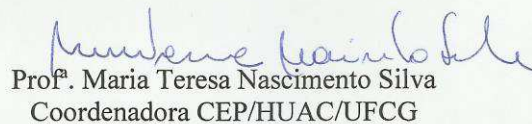 Profª. Maria Teresa Nascimento Silva
Coordenadora CEP/HUAC/UFCG